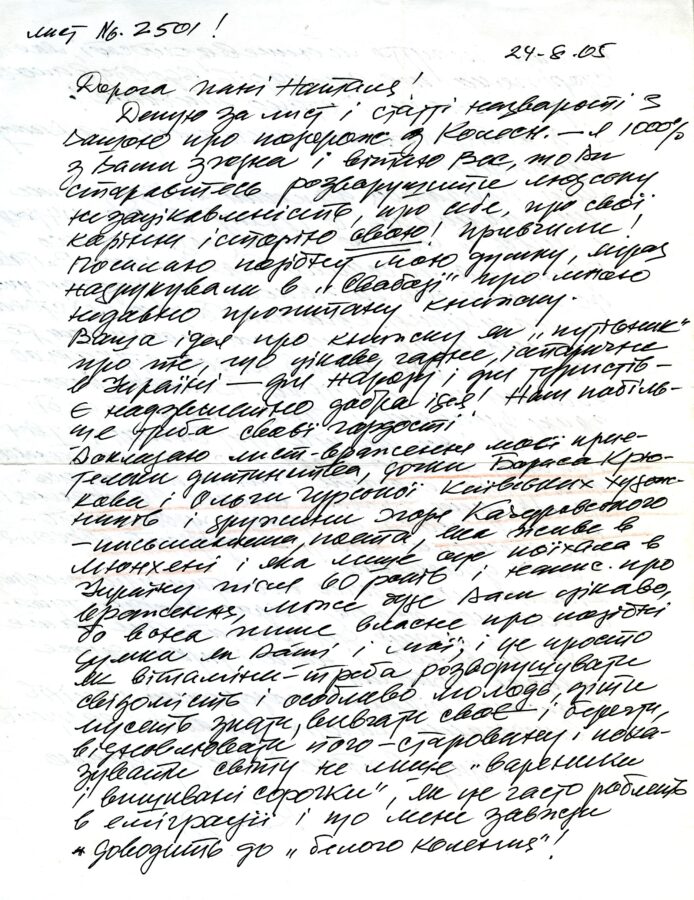 лист No. 2501!
24-8.05
Дорога пані Наталя!
Дякую за лист і статті назварості з
Вашою про подорож з Колеон. – Я 1000%
з Вами згодна і вітаю Вас, що Ви
стараєтесь розварушити людську
незацікавленість, про все, про свої
коріння історію свою! Привчили!
Посилаю подібну мою думку, мідаз
надрукували в „Свободі" про мною
недавно прочитану книжку.
Ваша ідея про книжку як „путівник"
про те, що цікаве, гарне, історичне
в Україні – для народу і для туристів –
Є надзвичайно добра ідея! Нам побіль-
ше треба своєї гордості!
Докладаю лист-враження моєї прия-
тельки дитинства, дочки Бориса Крю-
кова і Ольги Гурської київських худож-
ників і дружини Ігоря Качуровського
– письменника, поета, яка живе в
Мюнхені і яка лише що поїхала в
Україну після 60 років і напис. про
враження, може буде Вам цікаво,
бо вона пише власне про подібні
думки як Ваші і мої, і це просто
як вітаміни – треба розворушувати
свідомість і особливо молодь, діти
мусять знати, вивчати своє – і берегти,
відновлювати його – старовину і пока-
зувати світу не лише „вареники
і вишивані сорочки", як це часто роблять
в еміграції і що мене завжди
доводить до „белого коления"!